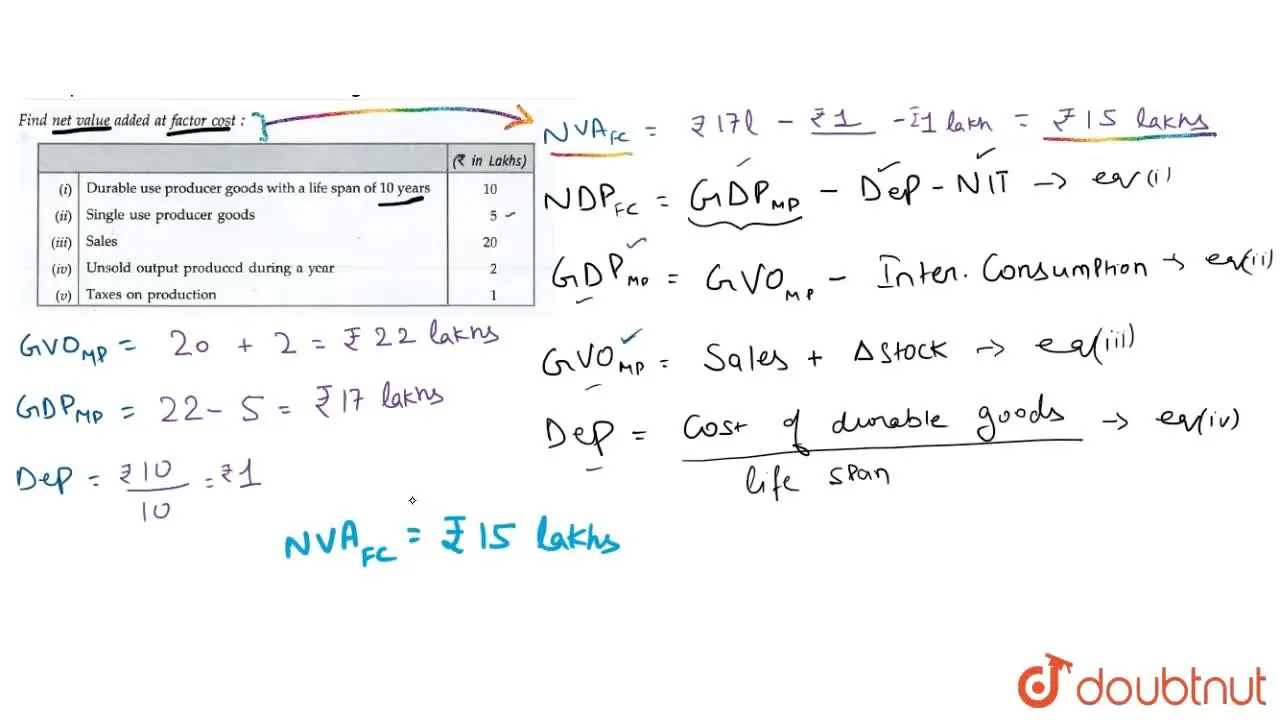 Find net value added at factor cost :
(₹ in Lakhs)
(i) Durable use producer goods with a life span of 10 years 10
(ii) Single use producer goods 5
(iii) Sales 20
(iv) Unsold output produced during a year 2
(v) Taxes on production 1
GVO MP = 20 + 2 = ₹ 22 lakhs
GDP MP = 22 - 5 = ₹ 17 lakhs
Dep = ₹10 / 10 = ₹1
NVA FC = ₹ 17l - ₹1 - ₹1 lakh = ₹ 15 lakhs
NDP FC = GDP MP - Dep - NIT → eq (i)
GDP MP = GVO MP - Inter. Consumption → eq (ii)
GVO MP = Sales + Δ Stock → eq (iii)
Dep = Cost of durable goods → eq (iv)
life span
NVA FC = ₹ 15 lakhs
doubtnut